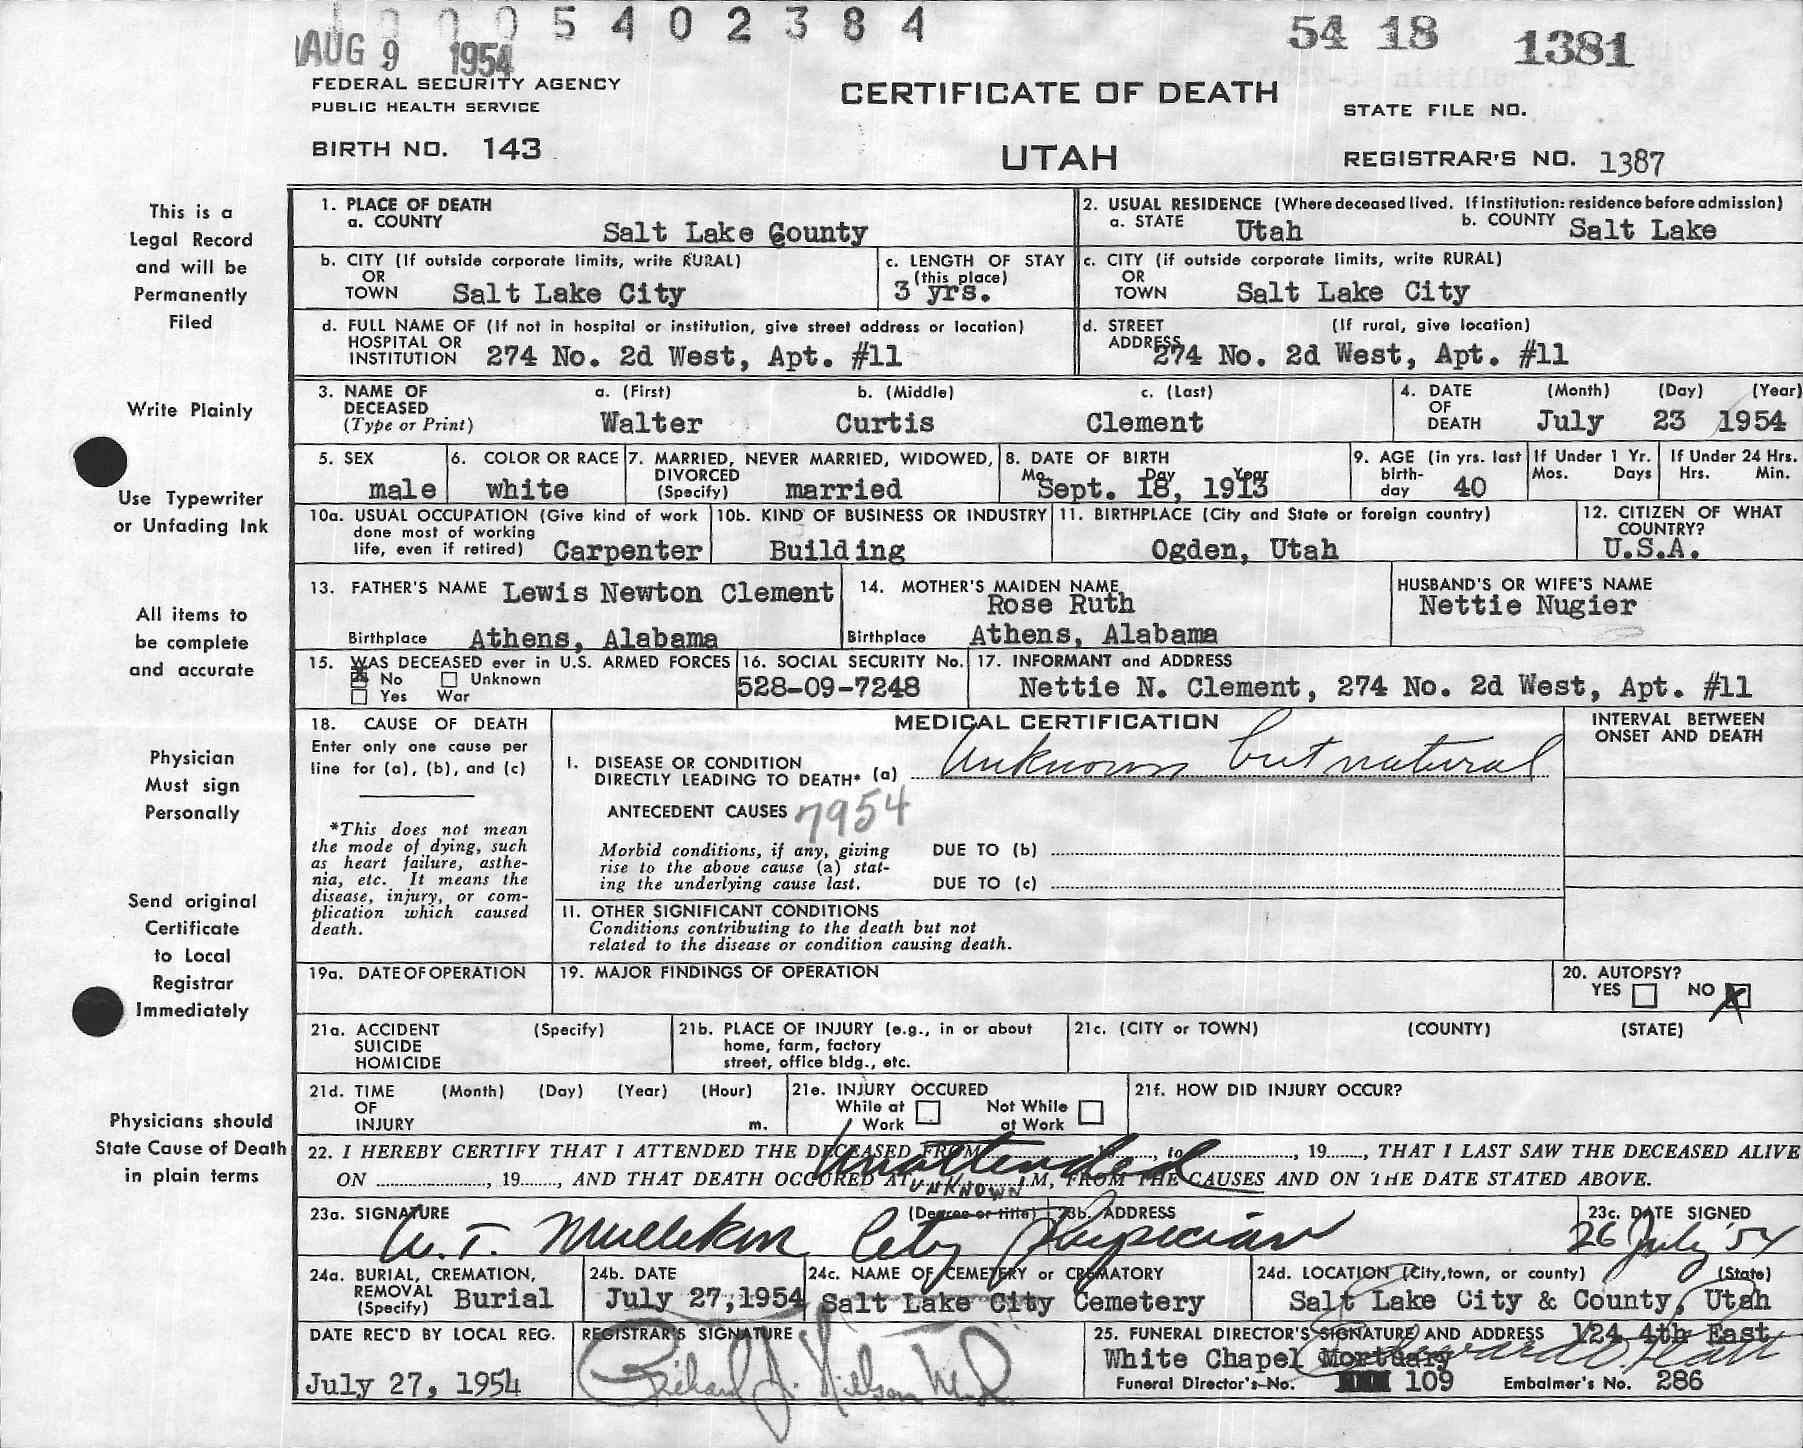 1 0 0 0 5 4 0 2 3 8 4
AUG 9 1954
54 18 1381
FEDERAL SECURITY AGENCY
PUBLIC HEALTH SERVICE
BIRTH NO. 143
CERTIFICATE OF DEATH
UTAH
STATE FILE NO.
REGISTRAR'S NO. 1387
This is a
Legal Record
and will be
Permanently
Filed
Write Plainly
Use Typewriter
or Unfading Ink
All items to
be complete
and accurate
Physician
Must sign
Personally
Send original
Certificate
to Local
Registrar
Immediately
Physicians should
State Cause of Death
in plain terms
1. PLACE OF DEATH
a. COUNTY Salt Lake County
2. USUAL RESIDENCE (Where deceased lived. If institution: residence before admission)
a. STATE Utah b. COUNTY Salt Lake
b. CITY (If outside corporate limits, write RURAL)
OR
TOWN Salt Lake City
c. LENGTH OF STAY
(this place)
3 yrs.
c. CITY (if outside corporate limits, write RURAL)
OR
TOWN Salt Lake City
d. FULL NAME OF (If not in hospital or institution, give street address or location)
HOSPITAL OR
INSTITUTION 274 No. 2d West, Apt. #11
d. STREET (If rural, give location)
ADDRESS 274 No. 2d West, Apt. #11
3. NAME OF a. (First) b. (Middle) c. (Last)
DECEASED
(Type or Print) Walter Curtis Clement
4. DATE (Month) (Day) (Year)
OF
DEATH July 23 1954
5. SEX
male
6. COLOR OR RACE
white
7. MARRIED, NEVER MARRIED, WIDOWED,
DIVORCED
(Specify) married
8. DATE OF BIRTH
Mo. Day Year
Sept. 18, 1913
9. AGE (in yrs. last
birth-
day 40
If Under 1 Yr.
Mos. Days
If Under 24 Hrs.
Hrs. Min.
10a. USUAL OCCUPATION (Give kind of work
done most of working
life, even if retired) Carpenter
10b. KIND OF BUSINESS OR INDUSTRY
Building
11. BIRTHPLACE (City and State or foreign country)
Ogden, Utah
12. CITIZEN OF WHAT
COUNTRY?
U.S.A.
13. FATHER'S NAME Lewis Newton Clement
Birthplace Athens, Alabama
14. MOTHER'S MAIDEN NAME
Rose Ruth
Birthplace Athens, Alabama
HUSBAND'S OR WIFE'S NAME
Nettie Nugier
15. WAS DECEASED ever in U.S. ARMED FORCES
No Unknown
Yes War
16. SOCIAL SECURITY No.
528-09-7248
17. INFORMANT and ADDRESS
Nettie N. Clement, 274 No. 2d West, Apt. #11
18. CAUSE OF DEATH
Enter only one cause per
line for (a), (b), and (c)
*This does not mean
the mode of dying, such
as heart failure, asthe-
nia, etc. It means the
disease, injury, or com-
plication which caused
death.
MEDICAL CERTIFICATION
INTERVAL BETWEEN
ONSET AND DEATH
I. DISEASE OR CONDITION
DIRECTLY LEADING TO DEATH* (a) Unknown but natural
ANTECEDENT CAUSES 7954
Morbid conditions, if any, giving
rise to the above cause (a) stat-
ing the underlying cause last.
DUE TO (b)
DUE TO (c)
11. OTHER SIGNIFICANT CONDITIONS
Conditions contributing to the death but not
related to the disease or condition causing death.
19a. DATE OF OPERATION
19. MAJOR FINDINGS OF OPERATION
20. AUTOPSY?
YES NO X
21a. ACCIDENT (Specify)
SUICIDE
HOMICIDE
21b. PLACE OF INJURY (e.g., in or about
home, farm, factory
street, office bldg., etc.
21c. (CITY or TOWN) (COUNTY) (STATE)
21d. TIME (Month) (Day) (Year) (Hour)
OF
INJURY m.
21e. INJURY OCCURED
While at Not While
Work at Work
21f. HOW DID INJURY OCCUR?
22. I HEREBY CERTIFY THAT I ATTENDED THE DECEASED FROM Unattended, to , 19 , THAT I LAST SAW THE DECEASED ALIVE
ON , 19 , AND THAT DEATH OCCURED AT UNKNOWN .M, FROM THE CAUSES AND ON THE DATE STATED ABOVE.
23a. SIGNATURE (Degree or title) 23b. ADDRESS
W. T. Mullekin City Physician
23c. DATE SIGNED
26 July '54
24a. BURIAL, CREMATION,
REMOVAL
(Specify) Burial
24b. DATE
July 27, 1954
24c. NAME OF CEMETERY or CREMATORY
Salt Lake City Cemetery
24d. LOCATION (City, town, or county) (State)
Salt Lake City & County, Utah
DATE REC'D BY LOCAL REG.
July 27, 1954
REGISTRAR'S SIGNATURE
Richard J. Nilson M.D.
25. FUNERAL DIRECTOR'S SIGNATURE AND ADDRESS 124 4th East
White Chapel Mortuary
Funeral Director's No. 109 Embalmer's No. 286